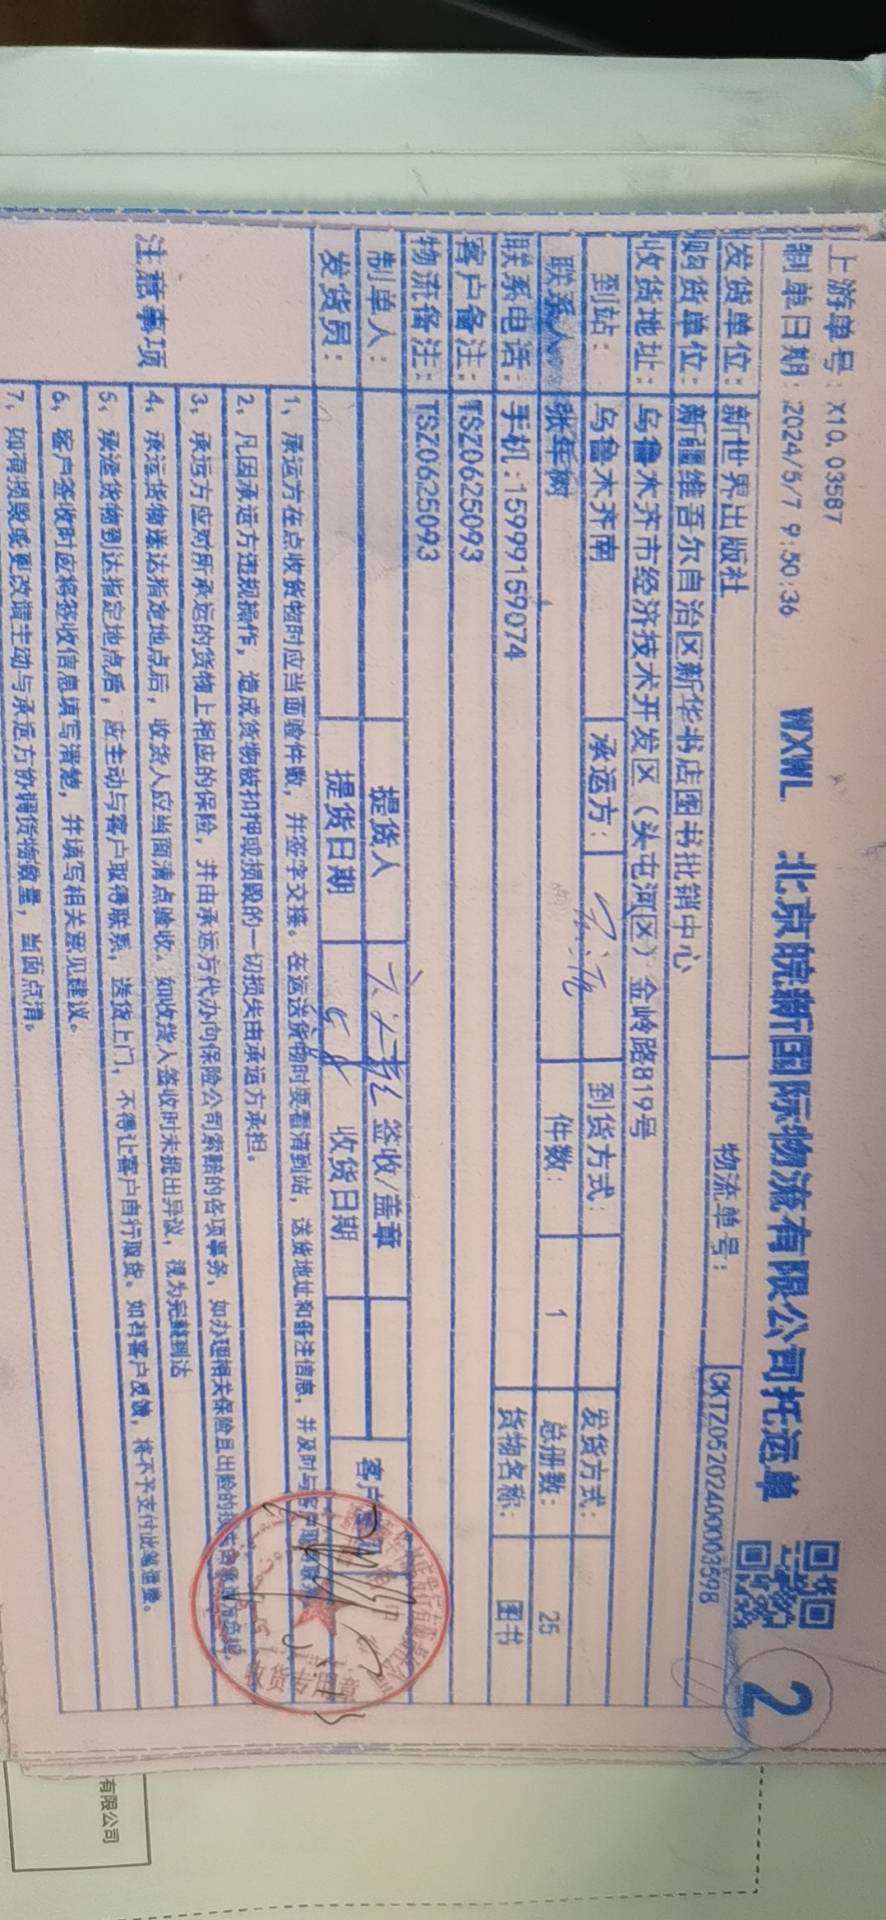 上游单号: X10.03587
制单日期: 2024/5/7 9:50:36 WXWL 北京皖新国际物流有限公司托运单
2
发货单位: 新世界出版社 物流单号: CKTZ05202400003598
购货单位: 新疆维吾尔自治区新华书店图书批销中心
收货地址: 乌鲁木齐市经济技术开发区（头屯河区）金岭路819号
到站: 乌鲁木齐南 承运方: 到货方式: 发货方式:
联系人 张年树 件数: 1 总册数: 25
联系电话: 手机:15999159074 货物名称: 图书
客户备注: TSZ0625093
物流备注: TSZ0625093
制单人: 提货人 签收/盖章 客户
发货员: 提货日期 5.8 收货日期
注意事项
1、承运方在点收货物时应当面验件数，并签字交接。在运送货物时要看清到站，送货地址和备注信息，并及时与客户
2、凡因承运方违规操作，造成货物被扣押或损毁的一切损失由承运方承担。
3、承运方应对所承运的货物上相应的保险，并由承运方代办向保险公司索赔的各项事务，如办理相关保险且出险的
4、承运货物送达指定地点后，收货人应当面清点验收。如收货人签收时未提出异议，视为完整到达
5、承运货物到达指定地点后，应主动与客户取得联系，送货上门，不得让客户自行取货。如有客户反馈，将不予支付此笔运费。
6、客户签收时应将签收信息填写清楚，并填写相关意见建议。
7、如有损毁或更改请主动与承运方协调货物数量，当面点清。
收货专用章
有限公司